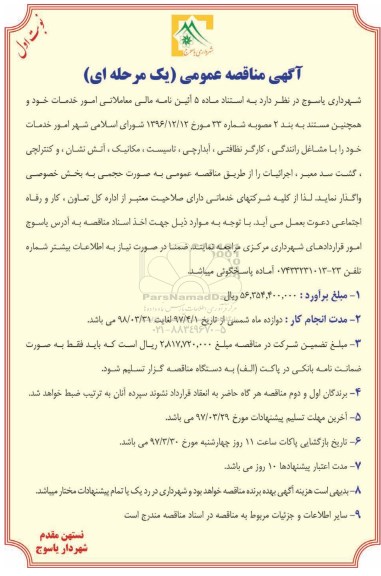 نوبت اول
شهرداری یاسوج
آگهی مناقصه عمومی (یک مرحله ای)
شهرداری یاسوج در نظر دارد به استناد ماده ۵ آئین نامه مالی معاملاتی امور خدمات خود و
همچنین مستند به بند ۲ مصوبه شماره ۳۳ مورخ ۱۳۹۶/۱۲/۱۲ شورای اسلامی شهر امور خدمات
خود را با مشاغل رانندگی ، کارگر نظافتی ، آبدارچی ، تاسیسات ، مکانیک ، آتش نشان ، و کنترلچی
، گشت سد معبر ، اجرائیات را از طریق مناقصه عمومی به صورت حجمی به بخش خصوصی
واگذار نماید. لذا از کلیه شرکتهای خدماتی دارای صلاحیت معتبر از اداره کل تعاون ، کار و رفاه
اجتماعی دعوت بعمل می آید. با توجه به موارد ذیل جهت اخذ اسناد مناقصه به آدرس یاسوج
امور قراردادهای شهرداری مرکزی مراجعه نمایند. ضمنا در صورت نیاز به اطلاعات بیشتر شماره
تلفن ۲۳-۰۷۴۳۳۲۳۱۰۱۳ آماده پاسخگوئی میباشد.
۱- مبلغ برآورد : ۵۶,۳۵۴,۴۰۰,۰۰۰ ریال
۲- مدت انجام کار : دوازده ماه شمسی از تاریخ ۹۷/۴/۱ لغایت ۹۸/۰۳/۳۱ می باشد.
۳- مبلغ تضمین شرکت در مناقصه مبلغ ۲۸۱۷,۷۲۰,۰۰۰ ریال است که باید فقط به صورت
ضمانت نامه بانکی در پاکت (الف) به دستگاه مناقصه گزار تسلیم شود.
۴- برندگان اول و دوم مناقصه هر گاه حاضر به انعقاد قرارداد نشوند سپرده آنان به ترتیب ضبط خواهد شد.
۵- آخرین مهلت تسلیم پیشنهادات مورخ ۹۷/۰۳/۲۹ می باشد.
۶- تاریخ بازگشایی پاکات ساعت ۱۱ روز چهارشنبه مورخ ۹۷/۳/۳۰ می باشد.
۷- مدت اعتبار پیشنهادها ۱۰ روز می باشد.
۸- بدیهی است هزینه آگهی بهده برنده مناقصه خواهد بود و شهرداری در رد یک یا تمام پیشنهادات مختار میباشد.
۹- سایر اطلاعات و جزئیات مربوط به مناقصه در اسناد مناقصه مندرج است
نستهن مقدم
شهردار یاسوج
ParsNamadData
۰۲۱-۸۸۳۴۹۶۷۰-۵